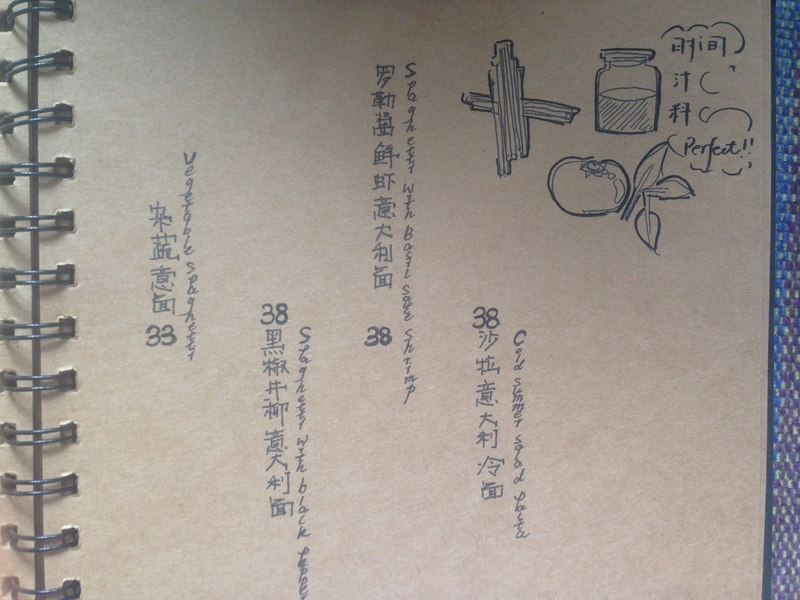 时间
汁
料
Perfect!!
Cold summer salad pasta
38
沙拉意大利冷面
Spaghetti with Basil sauce shrimp
罗勒酱鲜虾意大利面
38
Spaghetti with black
38
黑椒牛柳意大利面
Vegetable spaghetti
杂蔬意面
33